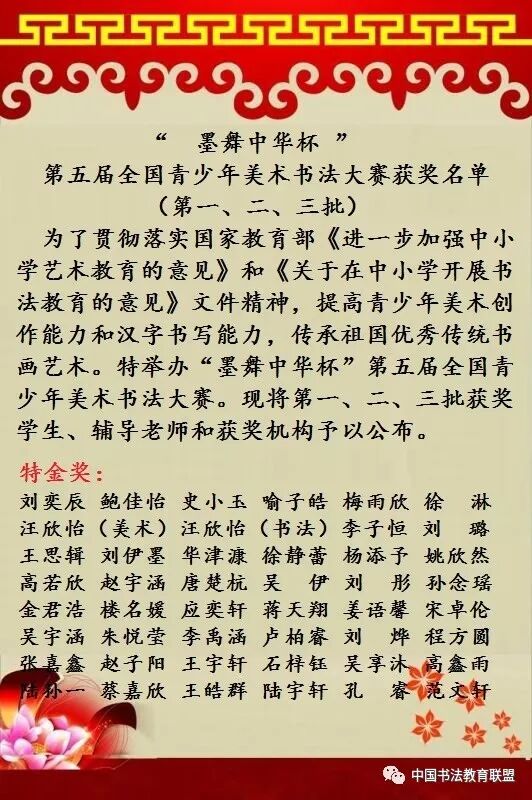 “ 墨舞中华杯 ”
第五届全国青少年美术书法大赛获奖名单
（第一、二、三批）
为了贯彻落实国家教育部《进一步加强中小
学艺术教育的意见》和《关于在中小学开展书
法教育的意见》文件精神，提高青少年美术创
作能力和汉字书写能力，传承祖国优秀传统书
画艺术。特举办“墨舞中华杯”第五届全国青
少年美术书法大赛。现将第一、二、三批获奖
学生、辅导老师和获奖机构予以公布。
特金奖：
刘奕辰 鲍佳怡 史小玉 喻子皓 梅雨欣 徐 淋
汪欣怡（美术）汪欣怡（书法）李子恒 刘 璐
王思辑 刘伊墨 华津濂 徐静蕾 杨添予 姚欣然
高若欣 赵宇涵 唐楚杭 吴 伊 刘 彤 孙念瑶
金君浩 楼名媛 应奕轩 蒋天翔 姜语馨 宋卓伦
吴宇涵 朱悦莹 李禹涵 卢柏睿 刘 烨 程方圆
张嘉鑫 赵子阳 王宇轩 石梓钰 吴享沐 高鑫雨
陆孙一 蔡嘉欣 王皓群 陆宇轩 孔 睿 范文轩
中国书法教育联盟